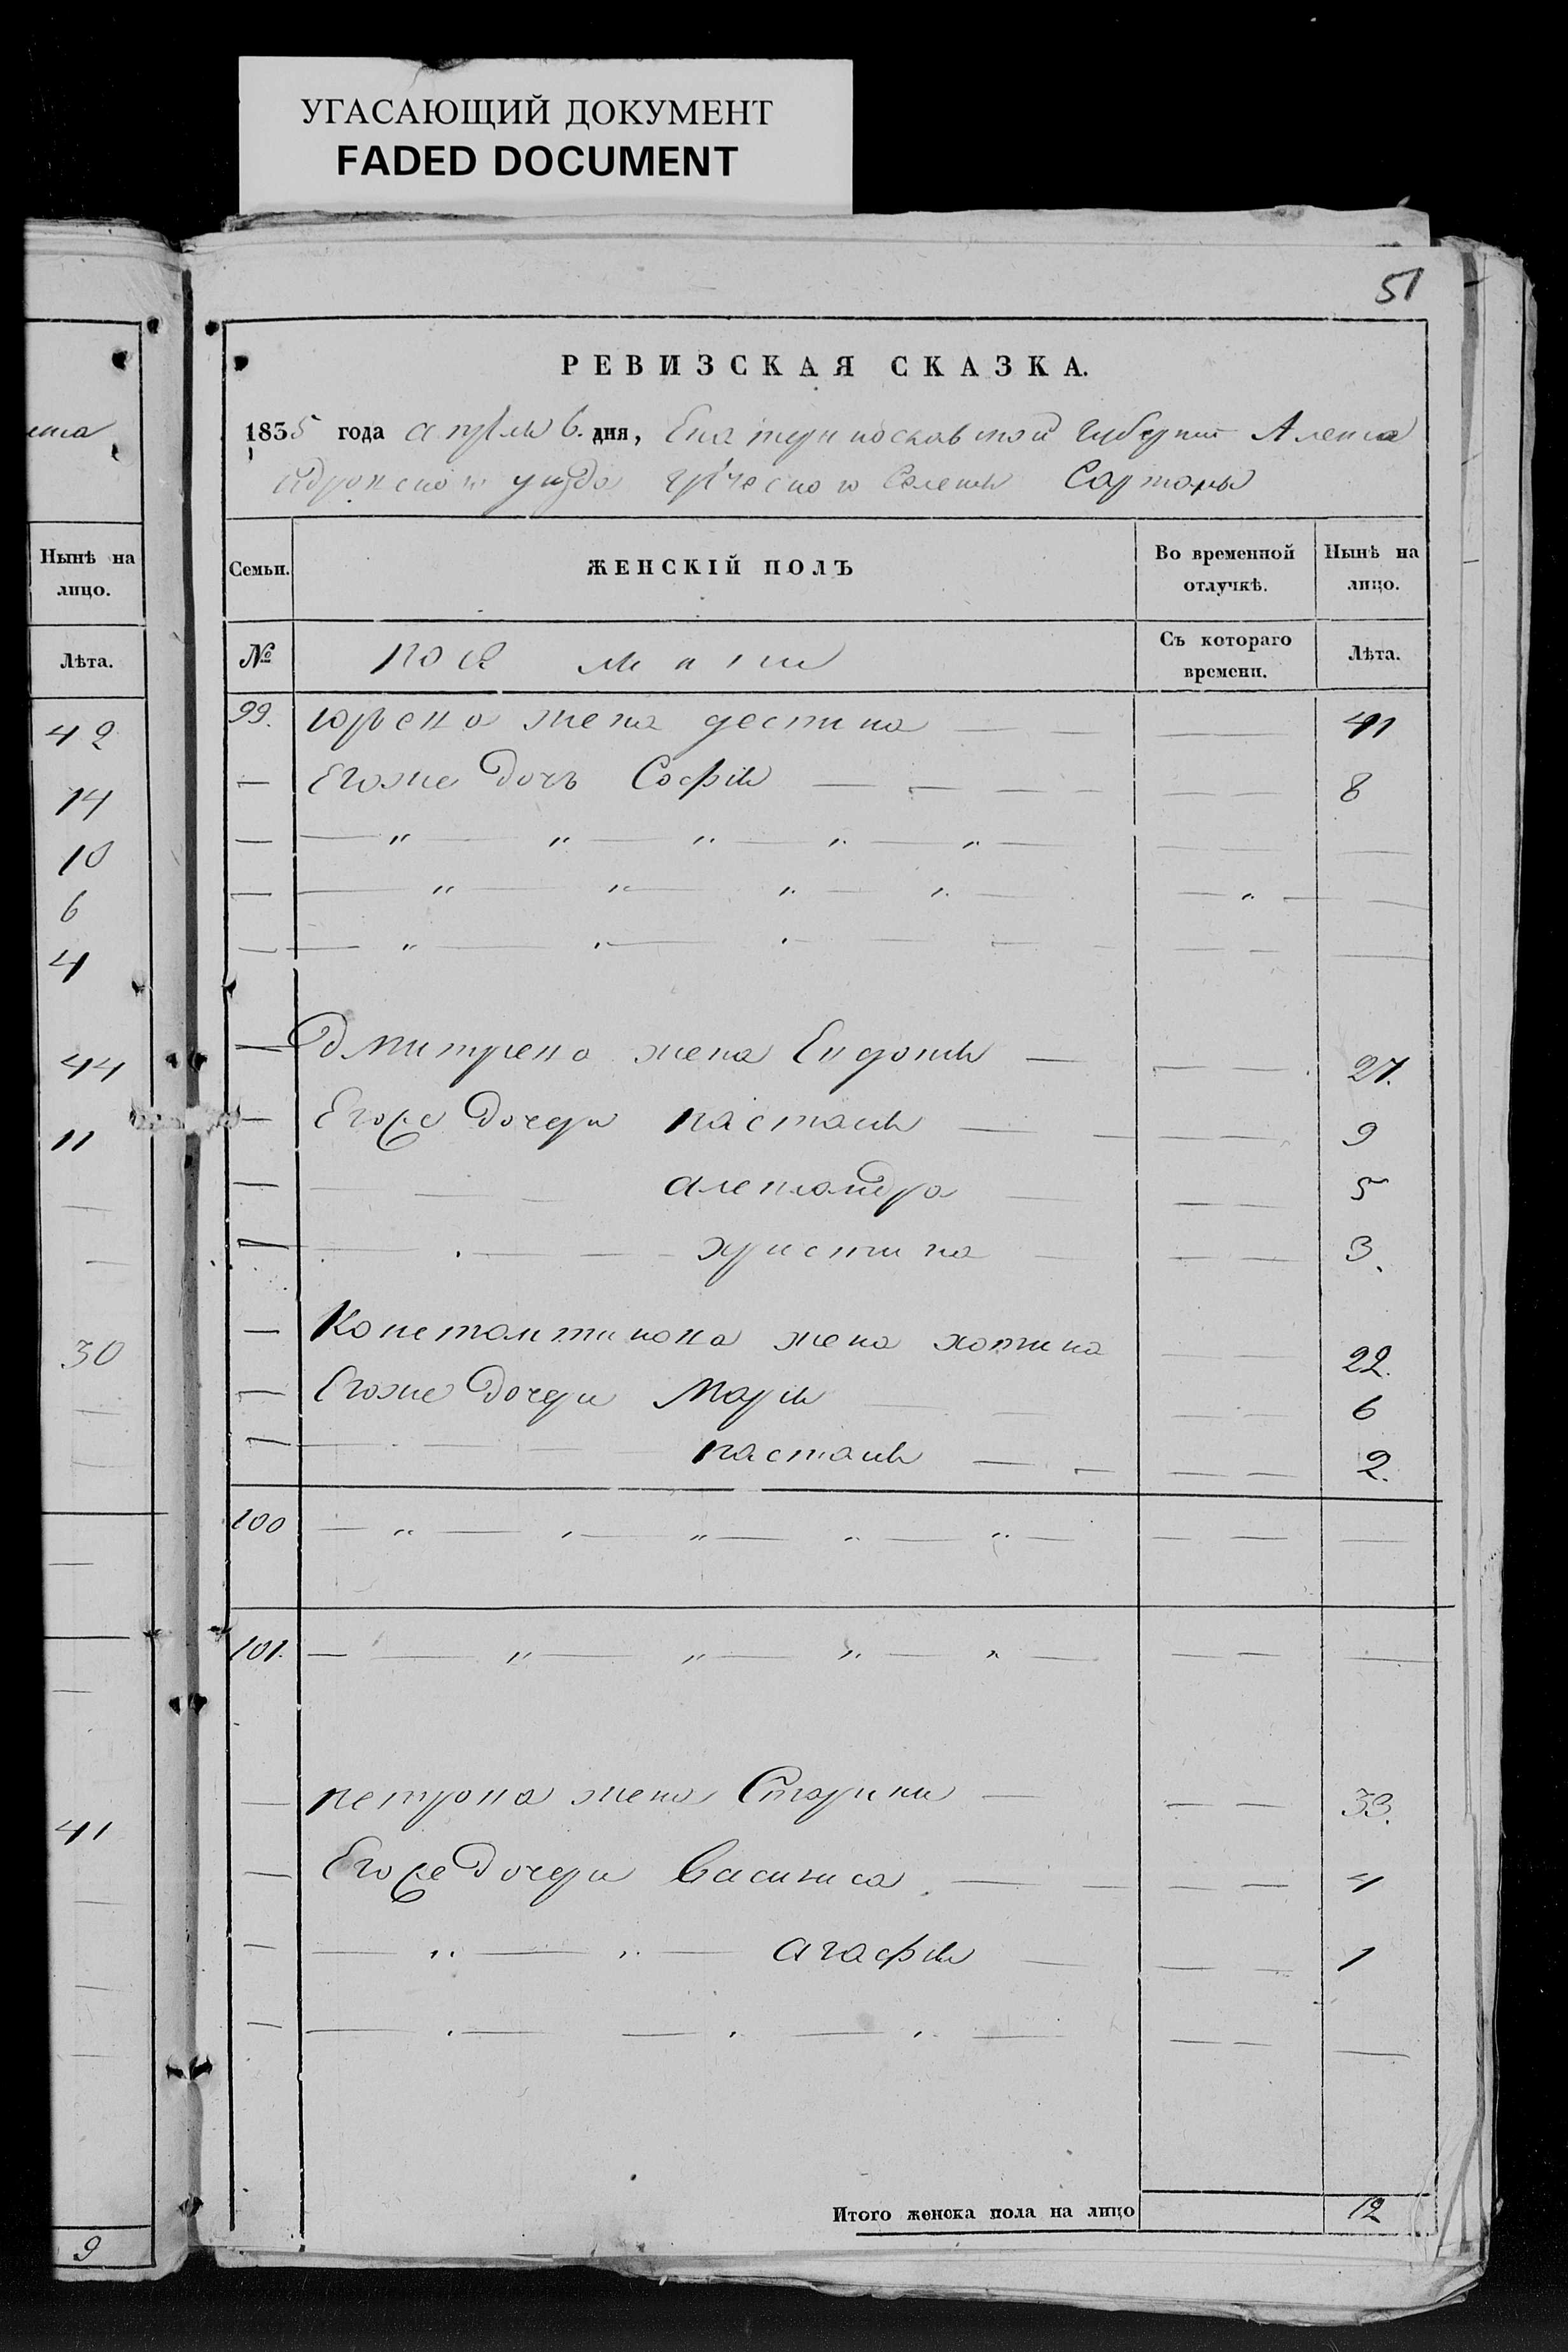 УГАСАЮЩИЙ ДОКУМЕНТ
FADED DOCUMENT
51
РЕВИЗСКАЯ СКАЗКА.
1835 года апреля 6. дня, Екатеринославской губернии Алекса
ндровского уезда греческого Селения Сартаны
Нынѣ на лицо.
Лѣта.
42
14
10
6
4
44
11
30
41
9
Семьи. ЖЕНСКІЙ ПОЛЪ Во временной отлучкѣ. Нынѣ на лицо.
№ Съ котораго времени. Лѣта.
99. юрьева жена деспина 41
Егоже дочь София 8
Дмитрева жена Евдокия 27.
Егоже дочери настасия 9
александра 5
христина 3.
Константинова жена хотина 22.
Егоже дочери Мария 6
настасия 2.
100
101.
петрова жена 33.
Егоже дочери Василиса 4
агафия 1
Итого женска пола на лицо 12